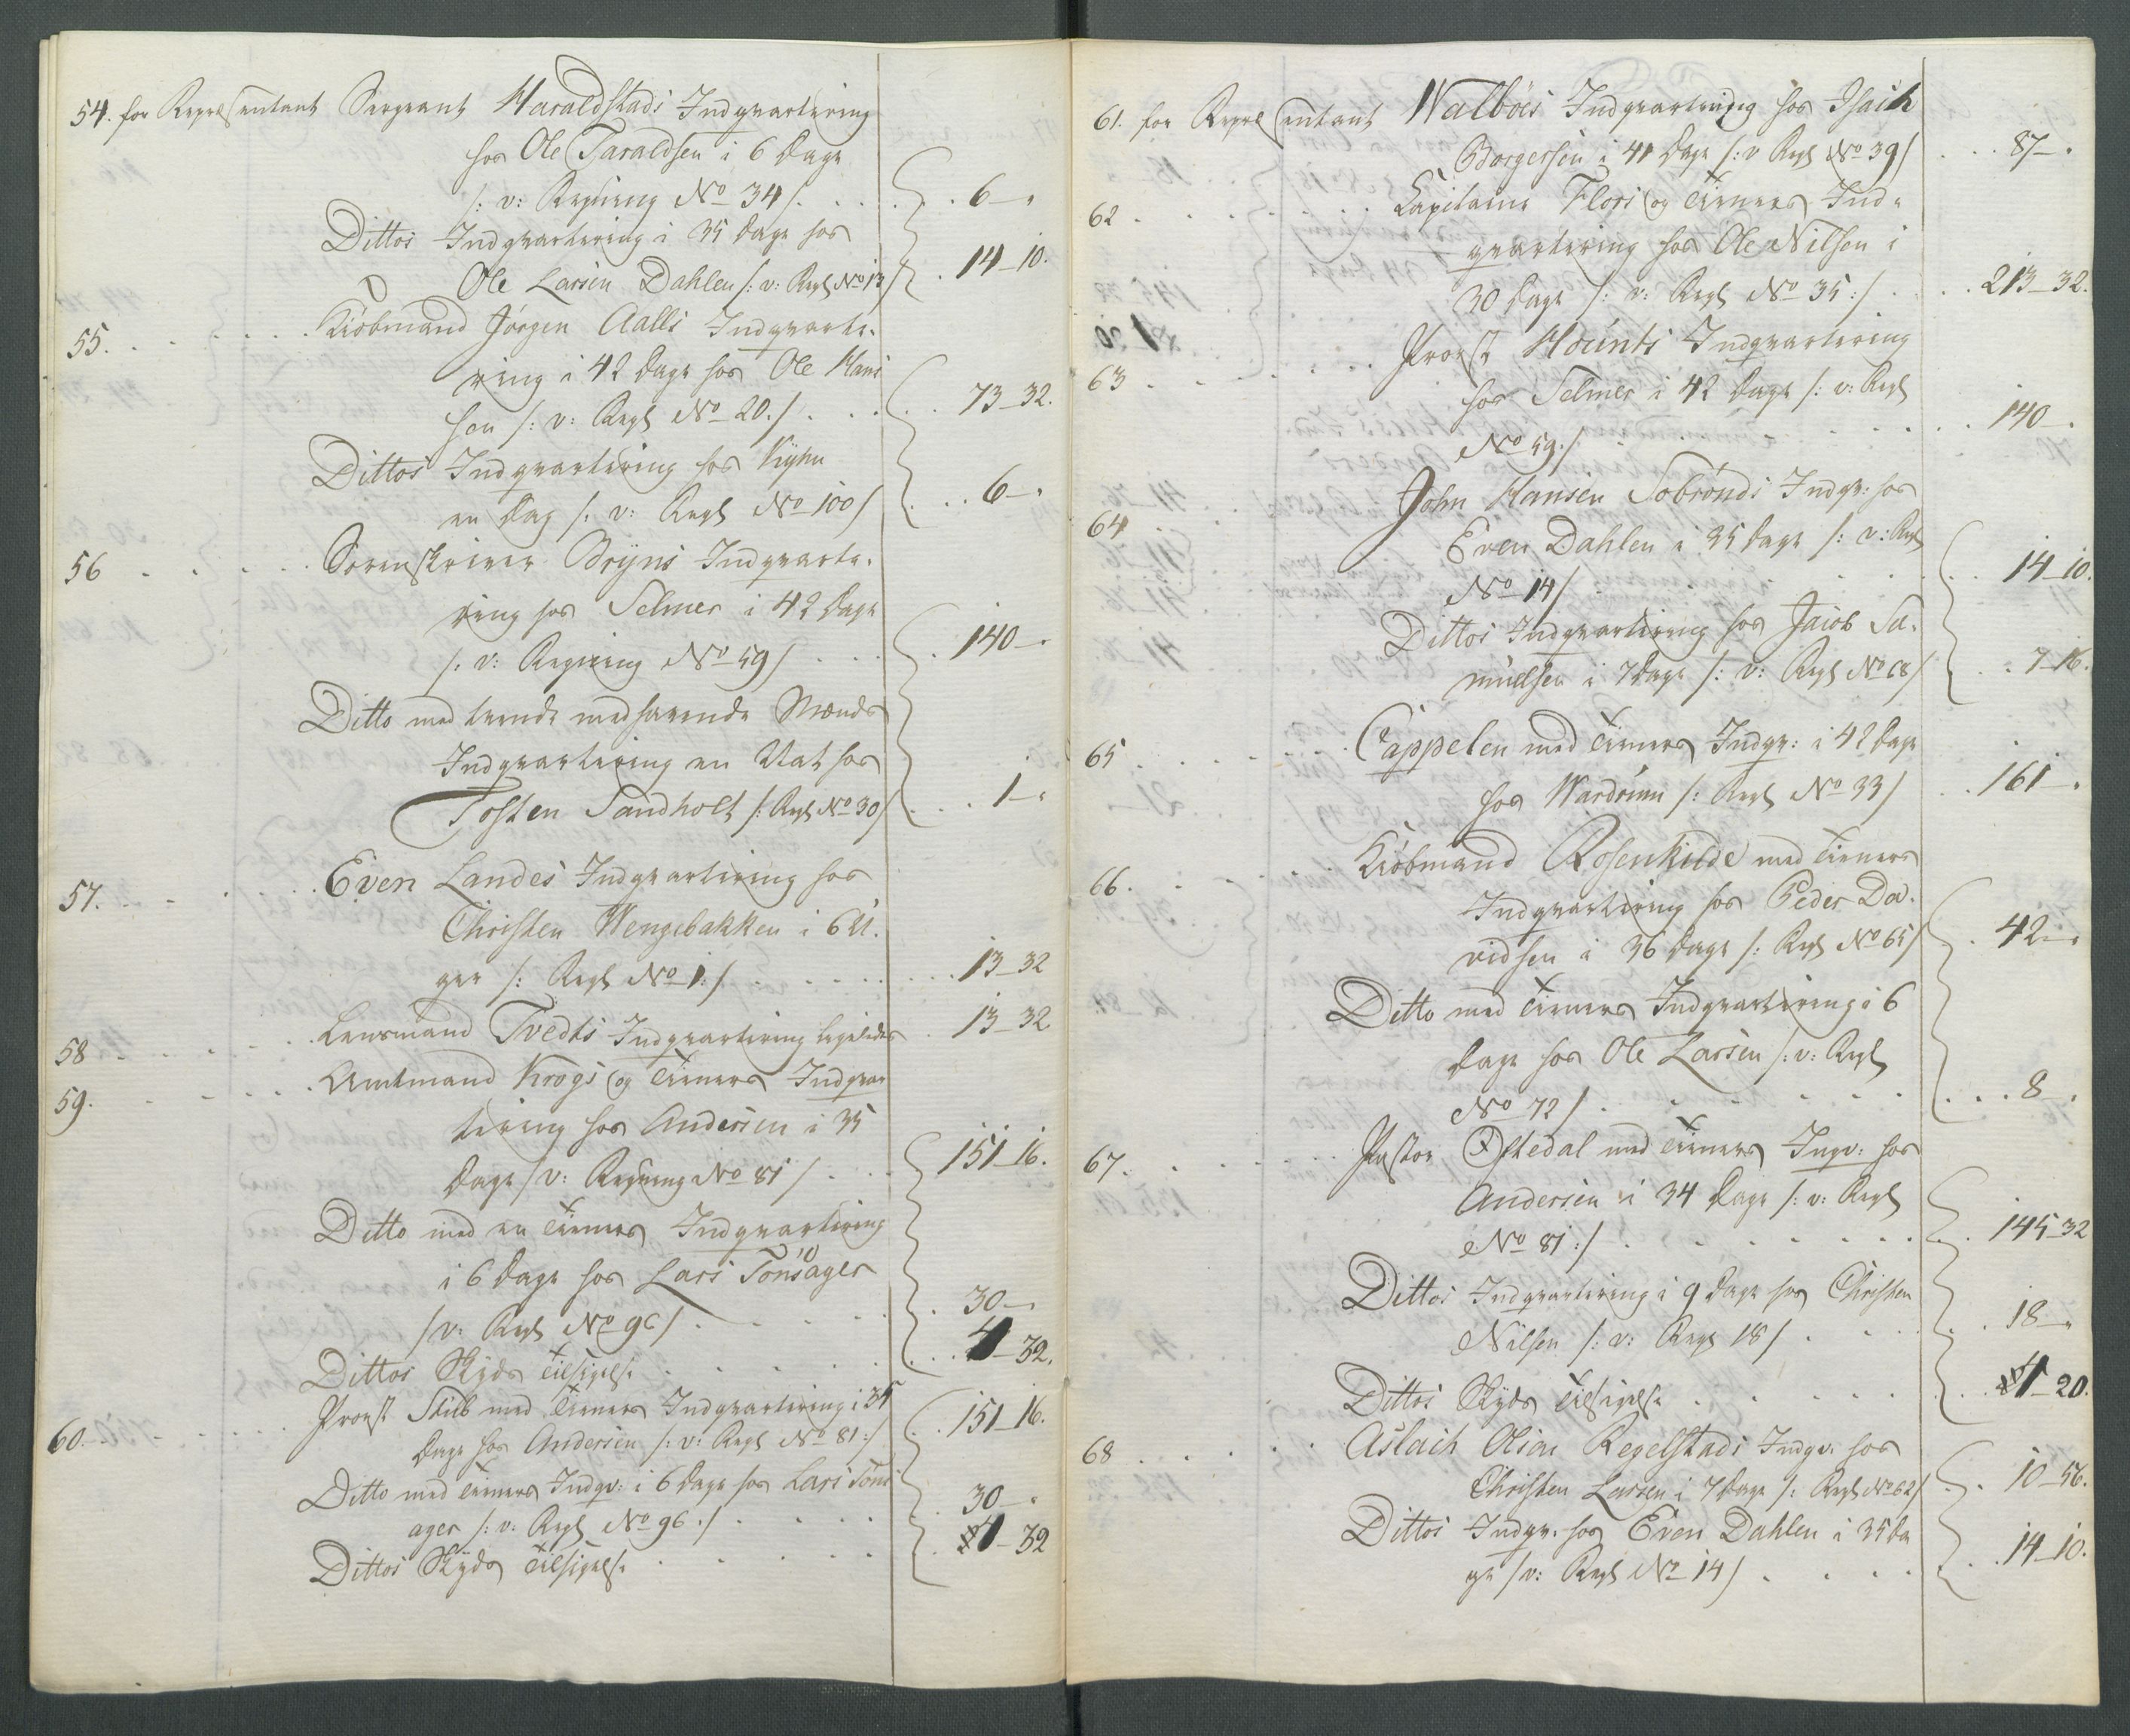 54. for Repræsentant Sergeant Haraldstads Indqvartering
hos Ole Taraldsen i 6 Dage
/: v: Regning No 34 / . . . . 6 -"
Dittos Indqvartering i 35 Dage hos
Ole Larsen Dahlen /: v: Regg No 13 / . 14-10.
55. . . . . . Kiöbmand Jörgen Aalls Indqvarte-
ring i 42 Dage hos Ole Han
sen /: v: Regg No 20. / . . . . 73-32.
Dittos Indqvartering hos
en Dag /: v: Regg No 100 / . . 6-"
56 . . . . . Sorenskriver Bryns Indqvarte-
ring hos Selmer i 42 Dage
/: v: Regning No 59 / . . . . 140-"
Ditto med tvende medhavende Mænds
Indqvartering en Nat hos
Tosten Sandholt /: Regg No 30 / . . 1-"
57. . . . . . Even Landes Indqvartering hos
Christen Wengebakken i 6 U-
ger /: Regg No 1 :/ . . . . . 13-32
58 . . . . . Lensmand Tvedts Indqvartering ligeledes . 13-32
59. . . . . . Amtmand Krogs og Tieners Indqvar
tering hos Andersen i 35
Dage / v: Regning No 81 / . . . 151-16.
Ditto med en Tieners Indqvartering
i 6 Dage hos Lars Tönsager
/ v: Regg No 96 / . . . . . 30-"
Dittos Skyds Tilsigelse . . . . . 4-32.
60. . . . . . Provst Stub med Tieners Indqvartering i 35
Dage hos Andersen /: v: Regg No 81 :/ . . 151-16.
Ditto med Tieners Indqv: i 6 Dage hos Lars Töns
ager /: v: Regg No 96. / . . . . . 30-"
Dittos Skyds Tilsigelse . . . . . 4-32
61. for Repræsentant Walböes Indqvartering hos Isach
Borgersen i 41 Dage /: v Regg No 39 / . . . 87-"
62 . . . . . Capitaine Flors og Tieners Ind-
qvartering hos Ole Nilsen i
30 Dage /: v: Regg No 35 :/ . . . 213-32.
63 . . . . . Provst Hounts Indqvartering
hos Selmer i 42 Dage /: v: Regg
No 59. / . . . . . 140-"
64 . John Hansen Sobrönds Indqv: hos
Even Dahlen i 35 Dage /: v: Regg
No 14 / . . . . . 14-10.
Dittos Indqvartering hos Jacob Sa-
muelsen i 7 Dage /: v: Regg No 68 / . . 7-16.
65 . . . . . Cappelen med Tieners Indqv: i 42 Dage
hos Wardrum /: Regg No 33 / . . 161-"
66. . . . . . Kiöbmand Rosenkilde med Tieners
Indqvartering hos Peder Da-
vidsen i 36 Dage /: Regg No 65 / . 42-"
Ditto med Tieners Indqvartering i 6
Dage hos Ole Larsen /: v: Regg
No 72 / . . . . . . . . 8-"
67. . . . . . Pastor Oftedal med Tieners Inqv: hos
Andersen i 34 Dage /: v: Regg
No 81 :/ . . . . . . . . 145-32
Dittos Indqvartering i 9 Dage hos Christen
Nilsen /: v: Regg 18 / . . . . 18-"
Dittos Skyds Tilsigelse . . . . . 4-20.
68 . . . . . Aslach Olsen Regelstads Indqv: hos
Christen Larsen i 7 Dage /: Regg No 62 / . . 10-56.
Dittos Indqv. hos Even Dahlen i 35 Da
ge / v: Regg No 14 / . . . . . 14-10.